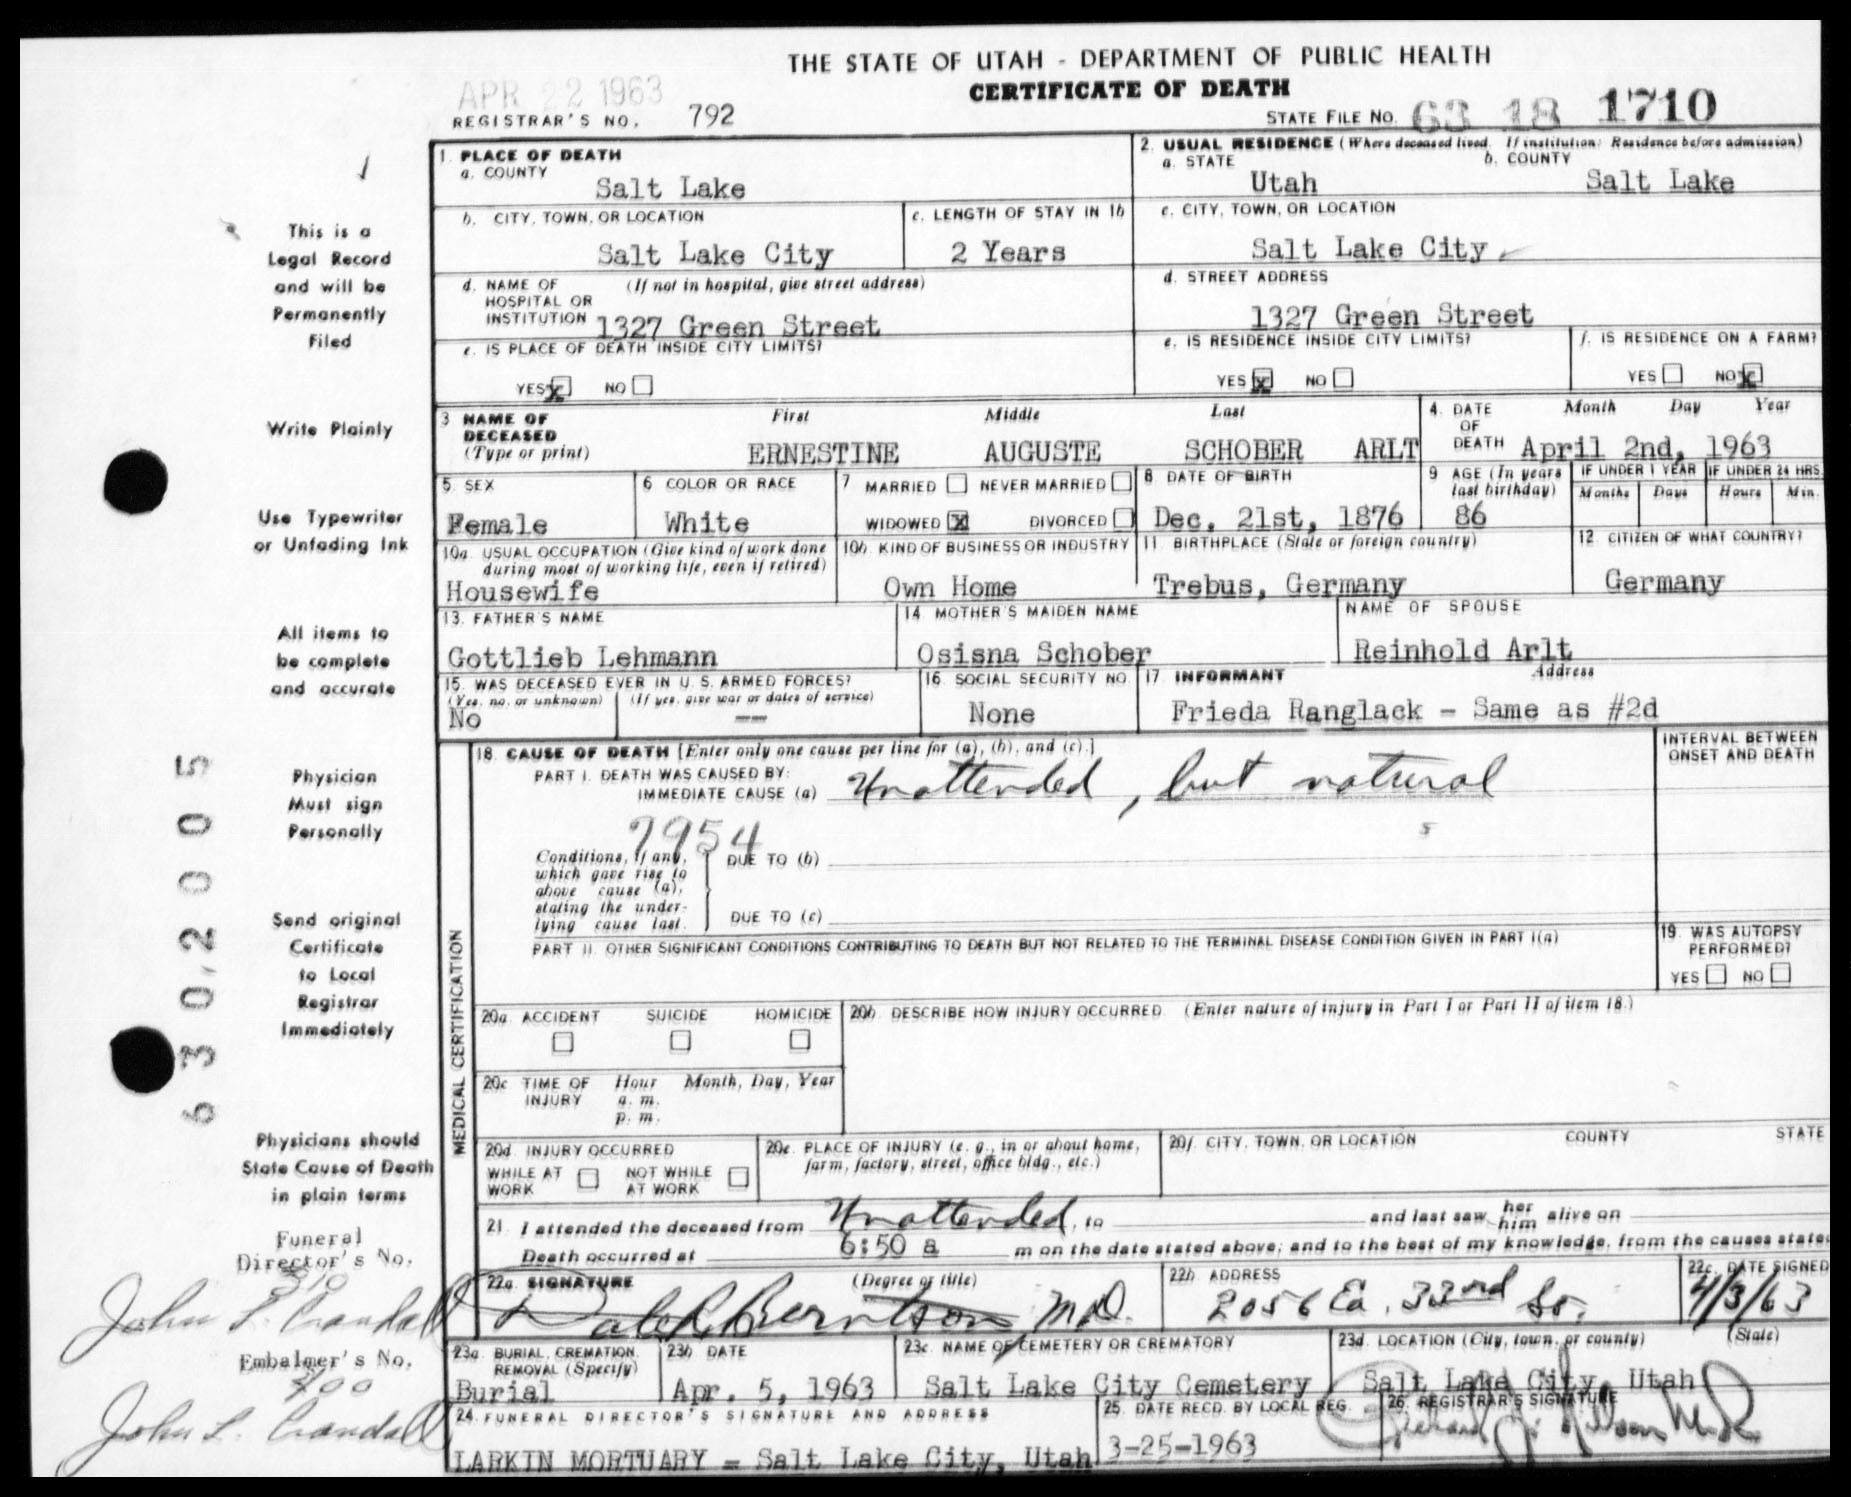 THE STATE OF UTAH - DEPARTMENT OF PUBLIC HEALTH
CERTIFICATE OF DEATH
APR 22 1963
REGISTRAR'S NO. 792
STATE FILE NO. 63 18 1710
This is a
Legal Record
and will be
Permanently
Filed
Write Plainly
Use Typewriter
or Unfading Ink
All items to
be complete
and accurate
Physician
Must sign
Personally
Send original
Certificate
to Local
Registrar
Immediately
Physicians should
State Cause of Death
in plain terms
Funeral
Director's No.
John L. Crandall
Embalmer's No.
400
John L. Crandall
630,2005
1. PLACE OF DEATH
a. COUNTY
Salt Lake
2. USUAL RESIDENCE (Where deceased lived. If institution: Residence before admission)
a. STATE b. COUNTY
Utah Salt Lake
b. CITY, TOWN, OR LOCATION
Salt Lake City
c. LENGTH OF STAY IN 1b
2 Years
c. CITY, TOWN, OR LOCATION
Salt Lake City
d. NAME OF (If not in hospital, give street address)
HOSPITAL OR
INSTITUTION 1327 Green Street
d. STREET ADDRESS
1327 Green Street
e. IS PLACE OF DEATH INSIDE CITY LIMITS?
YES x NO
e. IS RESIDENCE INSIDE CITY LIMITS?
YES x NO
f. IS RESIDENCE ON A FARM?
YES NO x
3 NAME OF First Middle Last
DECEASED
(Type or print) ERNESTINE AUGUSTE SCHOBER ARLT
4. DATE Month Day Year
OF
DEATH April 2nd, 1963
5. SEX
Female
6 COLOR OR RACE
White
7 MARRIED NEVER MARRIED
WIDOWED x DIVORCED
8 DATE OF BIRTH
Dec. 21st, 1876
9 AGE (In years
last birthday)
86
IF UNDER 1 YEAR IF UNDER 24 HRS.
Months Days Hours Min.
10a. USUAL OCCUPATION (Give kind of work done
during most of working life, even if retired)
Housewife
10b. KIND OF BUSINESS OR INDUSTRY
Own Home
11. BIRTHPLACE (State or foreign country)
Trebus, Germany
12. CITIZEN OF WHAT COUNTRY?
Germany
13. FATHER'S NAME
Gottlieb Lehmann
14. MOTHER'S MAIDEN NAME
Osisna Schober
NAME OF SPOUSE
Reinhold Arlt
15. WAS DECEASED EVER IN U. S. ARMED FORCES?
(Yes, no, or unknown) (If yes, give war or dates of service)
No --
16. SOCIAL SECURITY NO.
None
17. INFORMANT Address
Frieda Ranglack - Same as #2d
MEDICAL CERTIFICATION
18. CAUSE OF DEATH [Enter only one cause per line for (a), (b), and (c).]
PART I. DEATH WAS CAUSED BY:
IMMEDIATE CAUSE (a) Unattended, but natural
INTERVAL BETWEEN
ONSET AND DEATH
7954
Conditions, if any,
which gave rise to
above cause (a),
stating the under-
lying cause last.
DUE TO (b)
DUE TO (c)
PART II. OTHER SIGNIFICANT CONDITIONS CONTRIBUTING TO DEATH BUT NOT RELATED TO THE TERMINAL DISEASE CONDITION GIVEN IN PART I(a)
19. WAS AUTOPSY
PERFORMED?
YES NO
20a. ACCIDENT SUICIDE HOMICIDE
20b. DESCRIBE HOW INJURY OCCURRED. (Enter nature of injury in Part I or Part II of item 18.)
20c. TIME OF Hour Month, Day, Year
INJURY a. m.
p. m.
20d. INJURY OCCURRED
WHILE AT NOT WHILE
WORK AT WORK
20e. PLACE OF INJURY (e. g., in or about home,
farm, factory, street, office bldg., etc.)
20f. CITY, TOWN, OR LOCATION COUNTY STATE
21. I attended the deceased from Unattended, to and last saw her him alive on
Death occurred at 6:50 a m on the date stated above; and to the best of my knowledge, from the causes stated
22a. SIGNATURE (Degree or title)
M.D.
22b. ADDRESS
2056 Ea. 33rd So.
22c. DATE SIGNED
4/3/63
23a. BURIAL, CREMATION,
REMOVAL (Specify)
Burial
23b. DATE
Apr. 5, 1963
23c. NAME OF CEMETERY OR CREMATORY
Salt Lake City Cemetery
23d. LOCATION (City, town, or county) (State)
Salt Lake City, Utah
24. FUNERAL DIRECTOR'S SIGNATURE AND ADDRESS
LARKIN MORTUARY - Salt Lake City, Utah
25. DATE RECD. BY LOCAL REG.
3-25-1963
26. REGISTRAR'S SIGNATURE